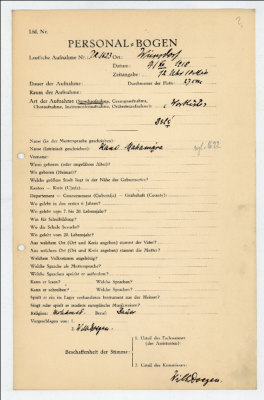 Lfd. Nr.
PERSONAL-BOGEN
Lautliche Aufnahme Nr.: PK 1623 Ort: Wünsdorf
Datum: 9./XII. 1918
Zeitangabe:
Dauer der Aufnahme: Durchmesser der Platte: 27 cm
Raum der Aufnahme:
Art der Aufnahme (Sprechaufnahme, Gesangsaufnahme,
Choraufnahme, Instrumentenaufnahme, Orchesteraufnahme):
Name (in der Muttersprache geschrieben):
Name (lateinisch geschrieben):
Vorname:
Wann geboren (oder ungefähres Alter):
Wo geboren (Heimat):
Welche größere Stadt liegt in der Nähe des Geburtsortes:
Kanton — Kreis (Ujezd):
Departement — Gouvernement (Gubernija) — Grafschaft (County):
Wo gelebt in den ersten 6 Jahren?
Wo gelebt vom 7. bis 20. Lebensjahr?
Was für Schulbildung?
Wo die Schule besucht?
Wo gelebt vom 20. Lebensjahr?
Aus welchem Ort (Ort und Kreis angeben) stammt der Vater?
Aus welchem Ort (Ort und Kreis angeben) stammt die Mutter?
Welchem Volksstamm angehörig?
Welche Sprache als Muttersprache?
Welche Sprachen spricht er außerdem?
Kann er lesen? Welche Sprachen?
Kann er schreiben? Welche Sprachen?
Spielt er ein im Lager vorhandenes Instrument aus der Heimat?
Singt oder spielt er moderne europäische Musikweisen?
Religion: Beruf: Bauer
Vorgeschlagen von: 1.
2. Wilh. Doegen.
Beschaffenheit der Stimme:
1. Urteil des Fachmannes
(des Assistenten):
2. Urteil des Kommissars:
Wilh. Doegen.